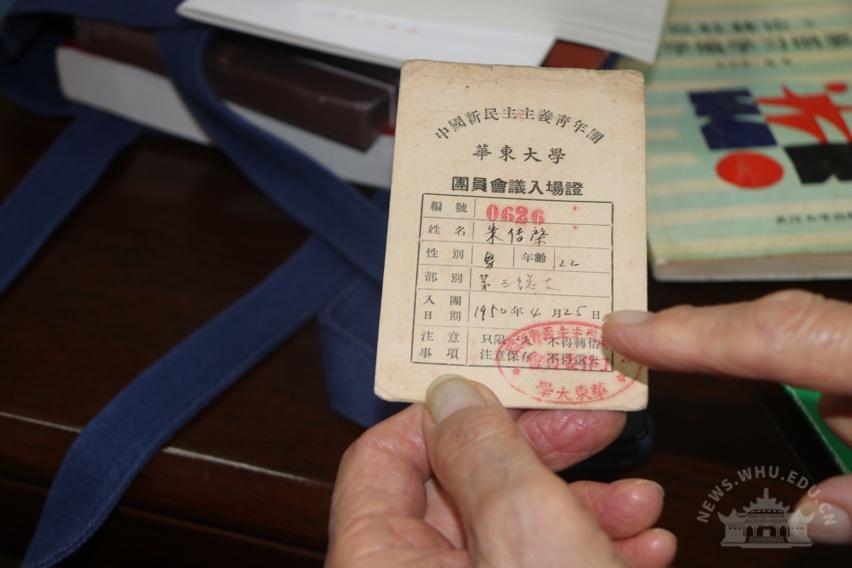 中國新民主主義青年團
華東大學
團員會議入場證
編號 0626
姓名 朱傳棨
性別 男 年齡 22
部別 第三總支
入團日期 1950年4月25日
注意事項 只限一人 不得轉借
注意保存 不得遺失
華東大學
NEWS.WHU.EDU.CN